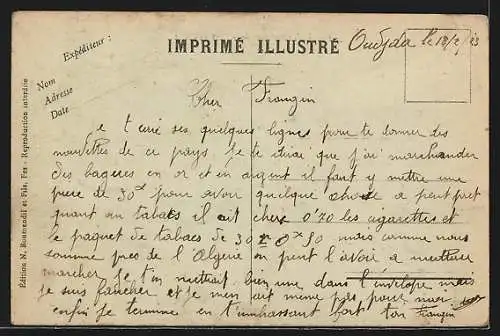 Expéditeur :
Nom
Adresse
Date
IMPRIMÉ ILLUSTRÉ
Oudjda le 18/2/23
Cher Frangin
e t'écrie ses quelques lignes pour te donner des
nouvelles de ce pays je te dirai que j'ai marchander
des bagues en or et en argent il faut y mettre une
piece de 30 pour avoir quelque chose a peut pret
quant au tabacs il ait chere 0'70 les cigarettes et
le paquet de tabacs de 30 0 50 mais comme nous
somme pres de l'Algerie on peut l'avoir a meilleur
marcher je t'en mettrait bien une dans l'envelope mais
je suis faucher et je n'en ait meme pas pour moi
enfin je termine en t'embrassant fort ton Frangin
Édition N. Boumendil et Fils, Fes - Reproduction interdite